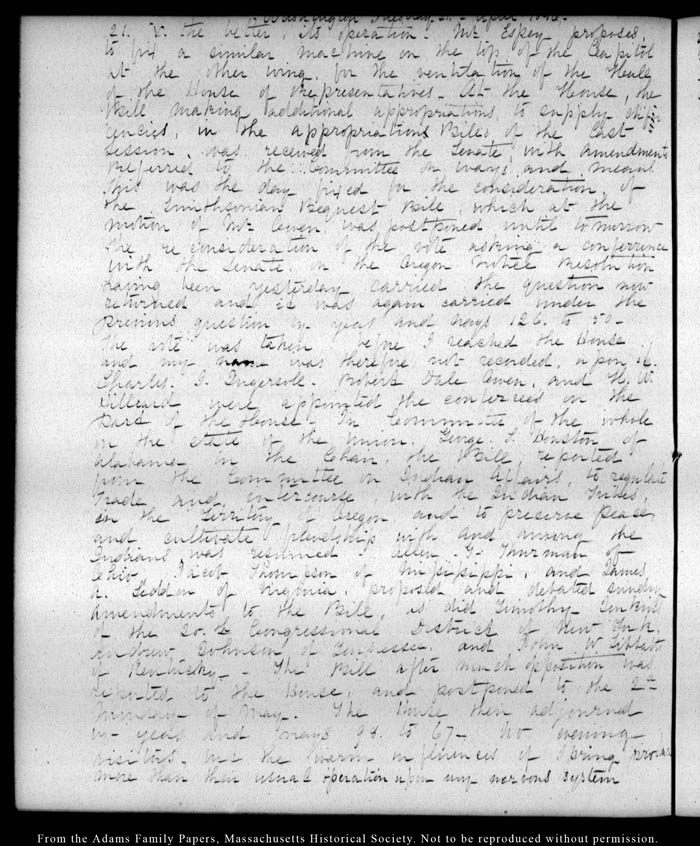 Washington Tuesday 21. April 1846.
21. V. the better, its operation. Mr Espey proposes,
to fix a similar machine on the top of the Capitol
at the other wing, for the ventilation of the Hall
of the House of Representatives. At the House, the
Bill making additional appropriations, to supply defi
ciencies, in the appropriations Bills of the last
Session, was received from the Senate, with amendments
Referred to the Committee on ways, and means
this was the day fixed for the consideration of
the Smithsonian Bequest Bill, which at the
motion of Mr Owen was postponed until tomorrow
The reconsideration of the vote asking a conference
with the Senate on the Oregon Notice Resolution
having been yesterday carried the question now
returned and it was again carried under the
previous question by yeas and nays 126. to 50-
the vote was taken before I reached the House
and my name was therefore not recorded, upon it.
Charles. J. Ingersoll. Robert Dale Owen, and H. W
Hilliard were appointed the conferees on the
part of the House. In Committee of the whole
on the state of the Union. George. S. Houston of
Alabama in the Chair, the Bill reported
from the Committee on Indian Affairs, to regulate
trade and, intercourse with the Indian tribes,
in the Territory of Oregon and to preserve peace,
and cultivate friendship with and among the
Indians was resumed. Allen. G. Thurman of
Ohio, Jacob Thompson of Mississippi, and James
A. Seddon of Virginia, proposed and debated sundry
amendments to the Bill, as did Timothy Jenkins
of the Congressional District of New York.
Andrew Johnson of Tennessee. and John. W Tibbatts
of Kentucky. The Bill after much opposition was
reported to the House, and postponed to the 2d
Monday of May. The House then adjourned
by yeas and nays 98. to 67- No evening
visitors. but the warm influences of Spring
more than their usual operation upon my nervous system
From the Adams Family Papers, Massachusetts Historical Society. Not to be reproduced without permission.